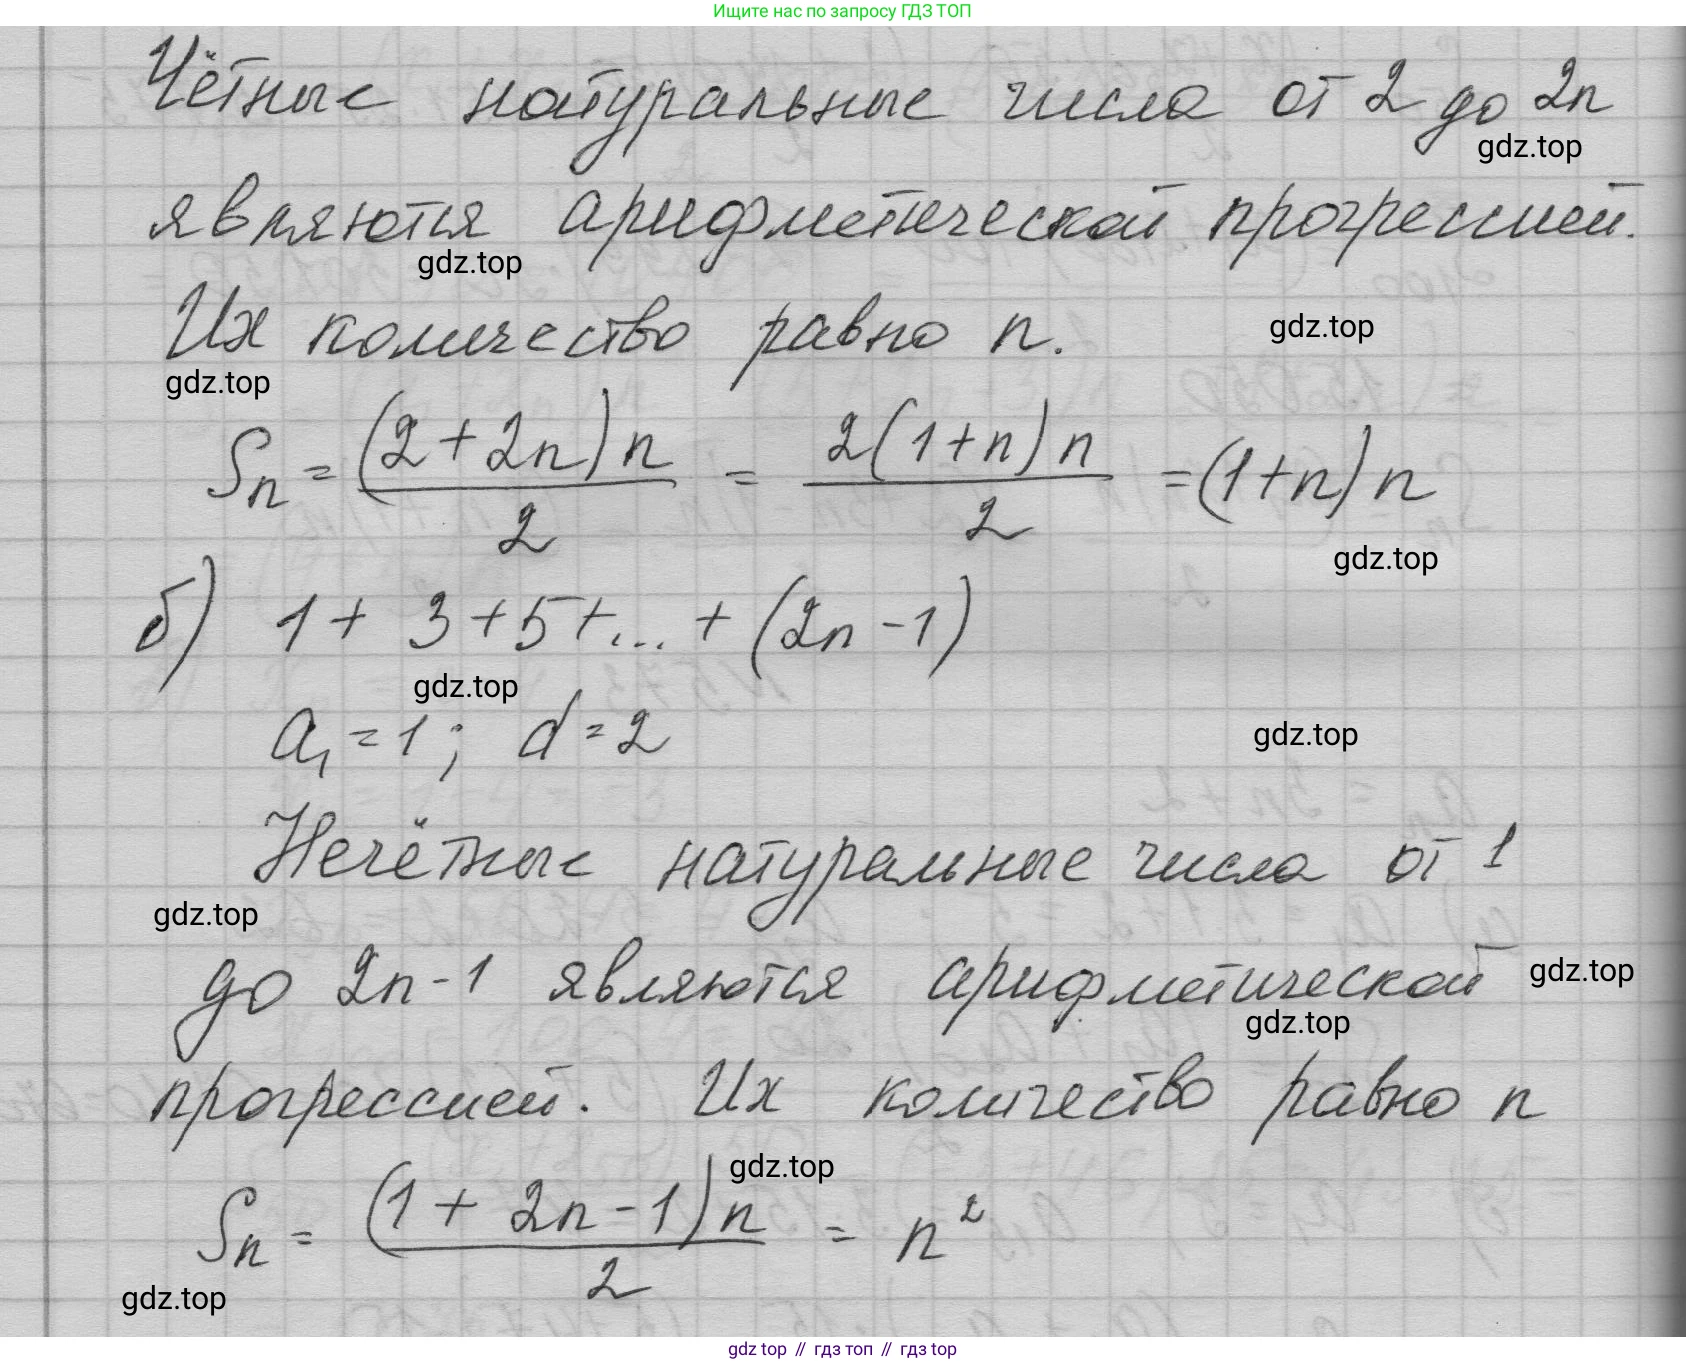 Ищите нас по запросу ГДЗ ТОП
Чётные натуральные числа от 2 до 2n
gdz.top
являются арифметической прогрессией.
gdz.top
Их количество равно n.
gdz.top
gdz.top
Sn = (2+2n)n/2 = 2(1+n)n/2 = (1+n)n
gdz.top
б) 1 + 3 + 5 + ... + (2n - 1)
gdz.top
a₁ = 1; d = 2
gdz.top
Нечётные натуральные числа от 1
gdz.top
до 2n-1 являются арифметической
gdz.top
gdz.top
прогрессией. Их количество равно n
gdz.top
Sn = (1 + 2n - 1)n/2 = n²
gdz.top
gdz top // гдз топ // gdz top